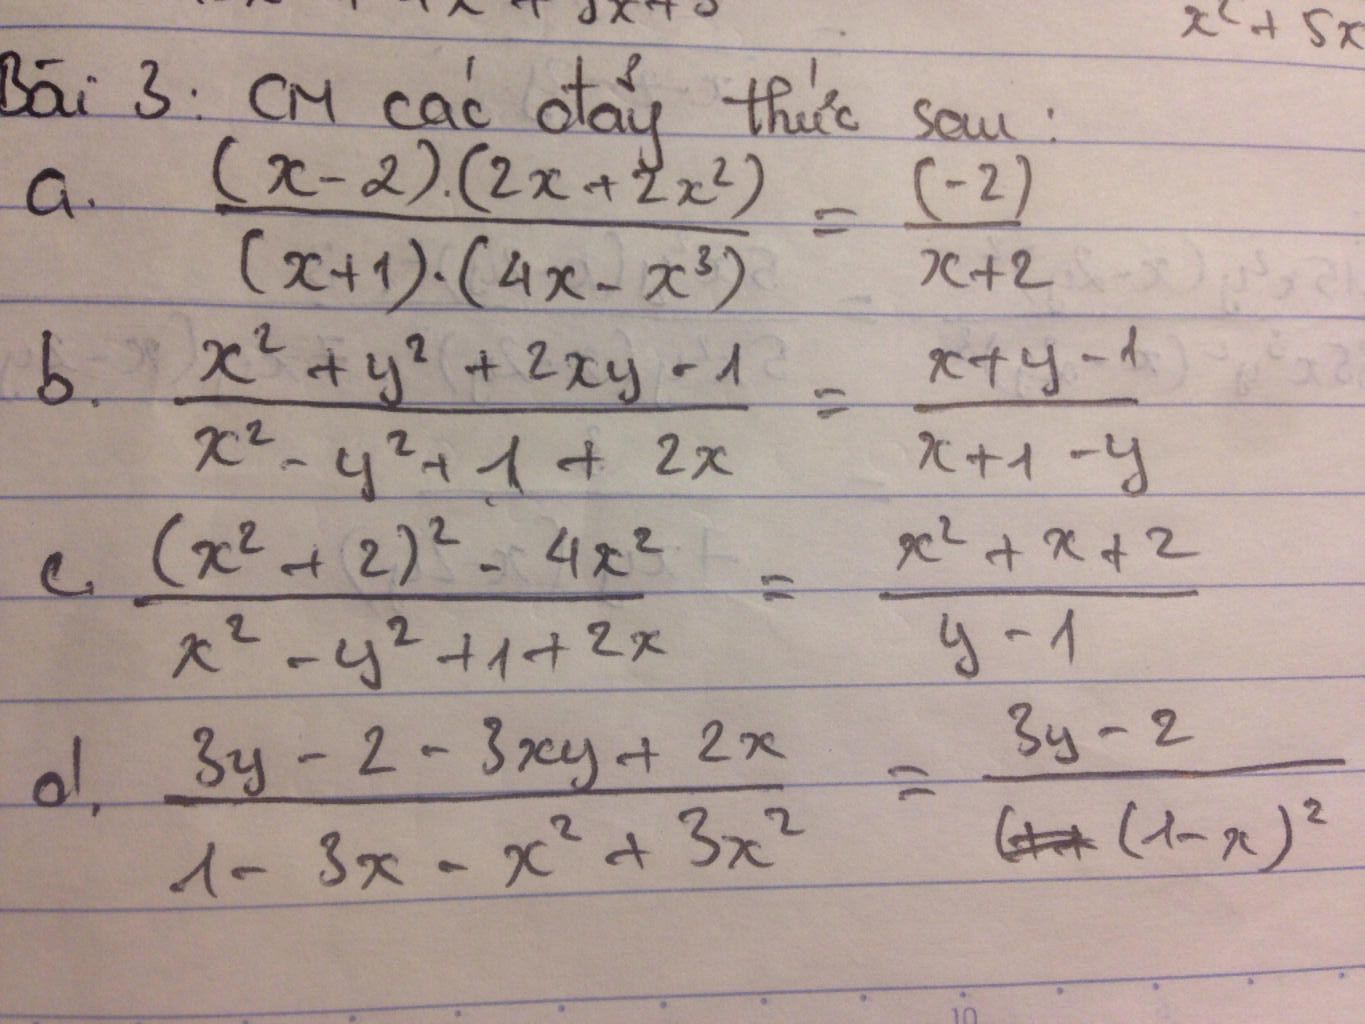 x² + 5x
Bài 3: CM các đẳng thức sau:
a. \frac{(x-2).(2x+2x²)}{(x+1).(4x-x³)} = \frac{(-2)}{x+2}
b. \frac{x²+y²+2xy-1}{x²-y²+1+2x} = \frac{x+y-1}{x+1-y}
c. \frac{(x²+2)²-4x²}{x²-y²+1+2x} = \frac{x²+x+2}{y-1}
d. \frac{3y-2-3xy+2x}{1-3x-x²+3x²} = \frac{3y-2}{(1-x)²}
10